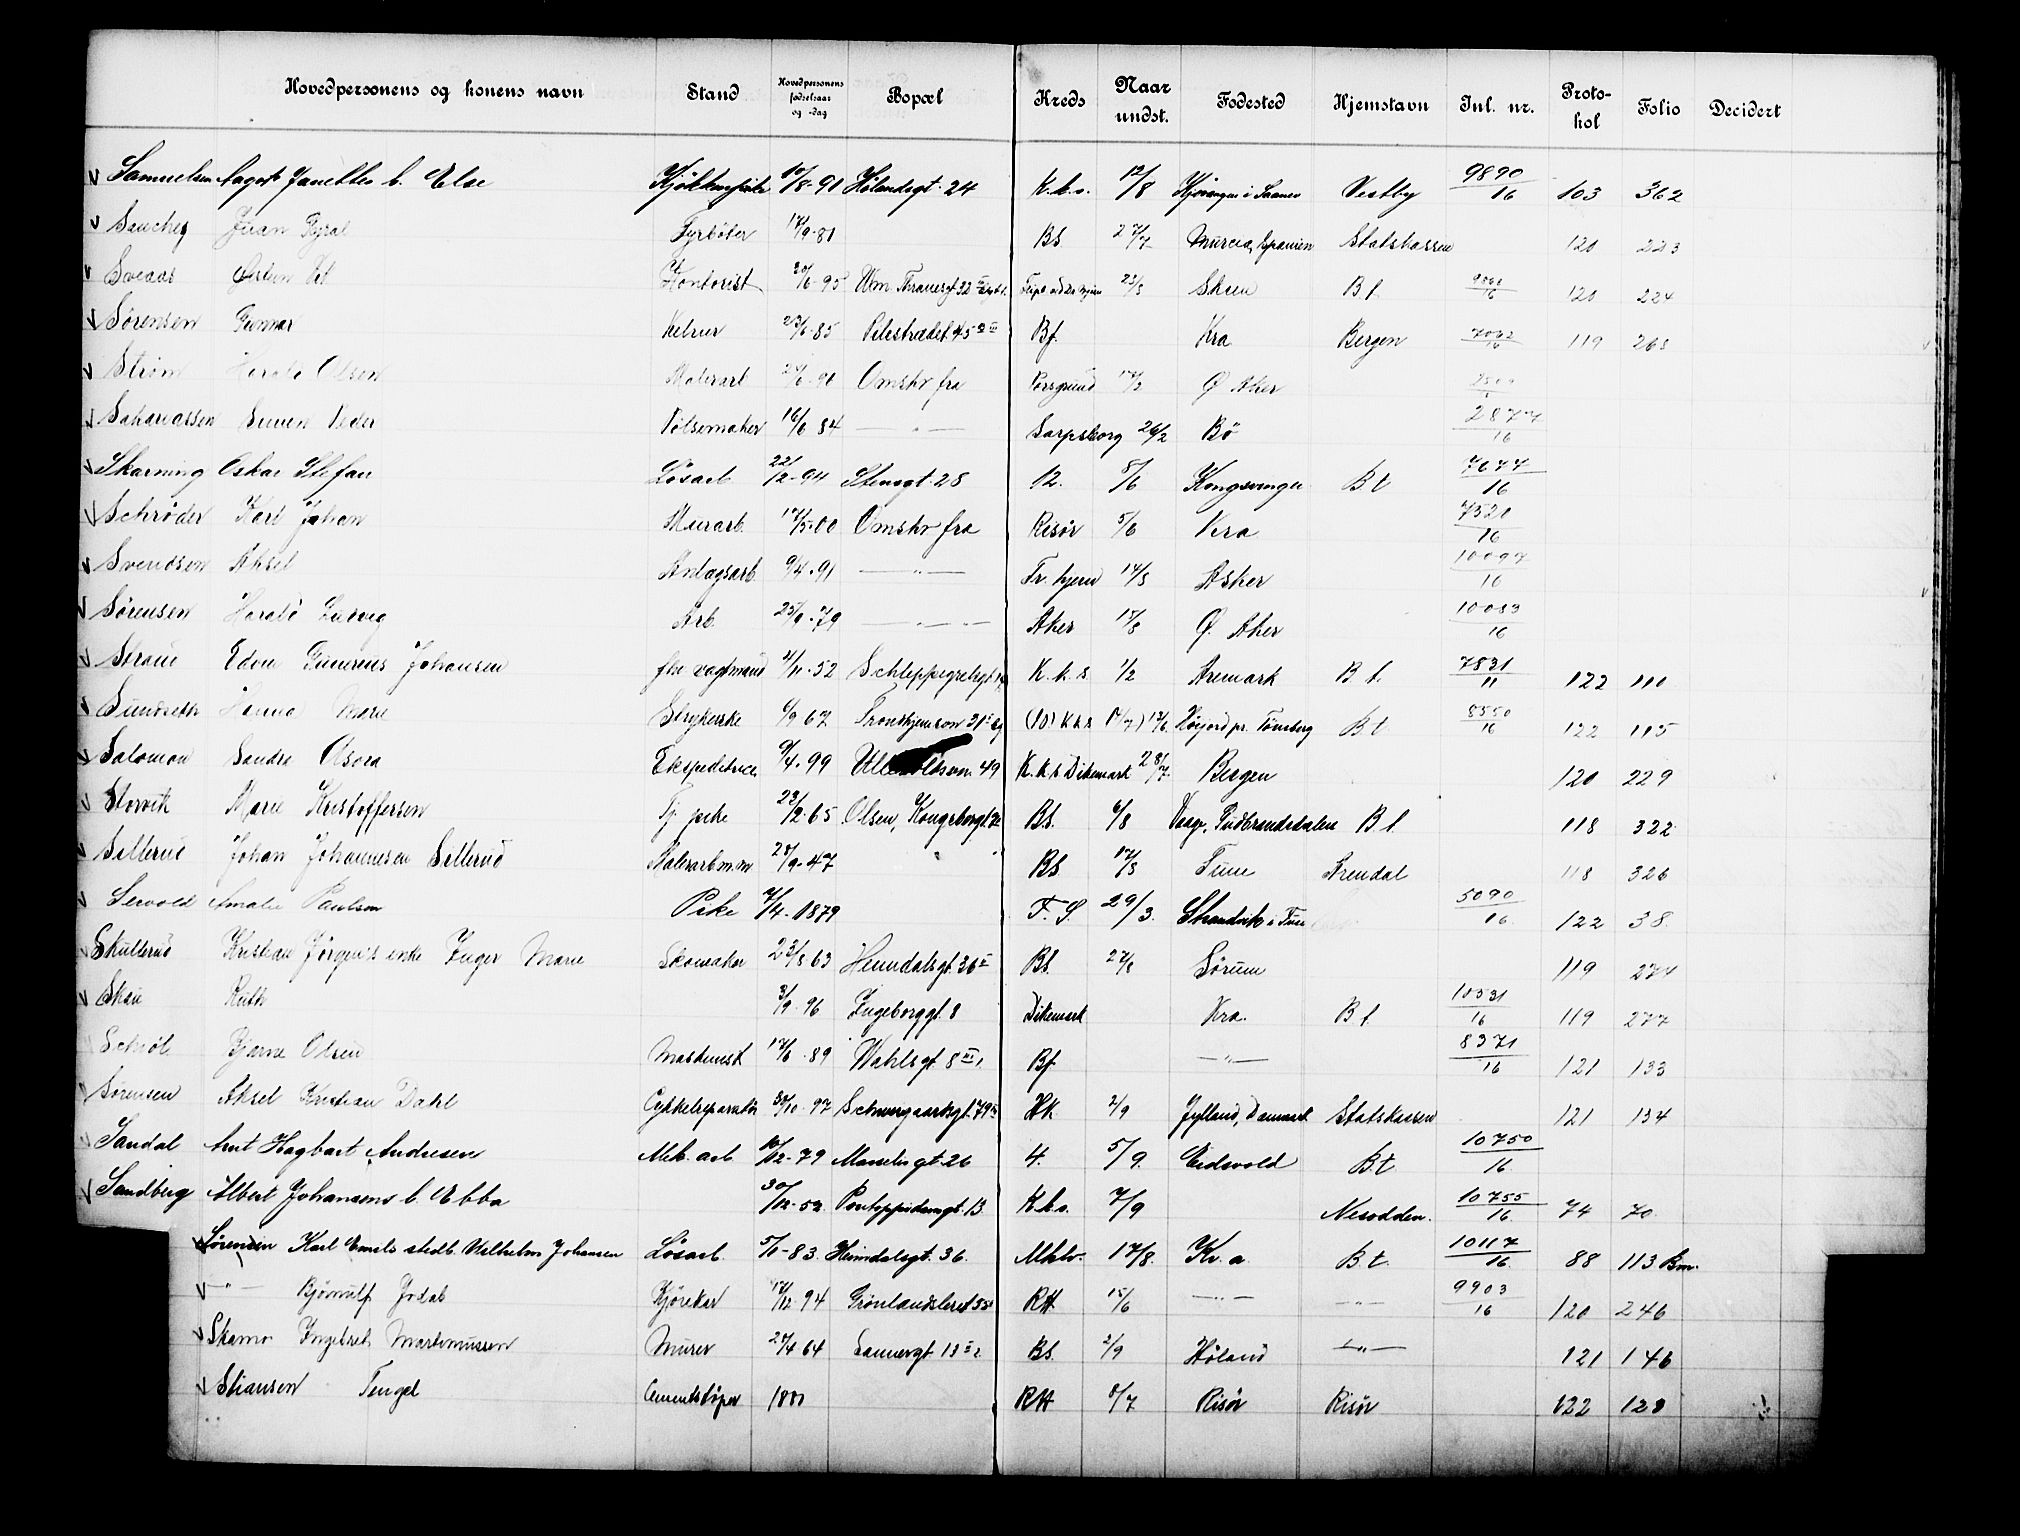 Hovedpersonens og konens navn Stand Hovedpersonens fødselsaar og -dag Bopæl Kreds Naar undst. Fødested Hjemstavn Inl. nr. Proto-kol Folio Decidert
Samuelsen Aagot Janettes b. Else 10/8-91 Hølandsgt. 24 K.k.s. 12/8 Vestby 9890/16 103 362
Juan Fyrbøter 17/9-81 BS 27/7 Murcia, Spanien Statskassen 120 223
Sveaas Kontorist 20/6-95 Wm. Thranesgt 22 23/8 Skien B.t. 120 224
Sørensen Gunnar Kelner 23/6-85 Pilestrædet 45 Bf. Kra Bergen 7032/16 119 268
Strøm Harald Olsen Malerarb Omskr fra Porsgrund 17/2 Ø Aker
Sakariassen Peder Pølsemaker 16/6 84 — " — Sarpsborg 26/2 Bø 2877/16
Skarning Oskar Stefan Løsarb. 22/12-94 Stensgt. 28 12. 8/6 Kongsvinger B t 7677/16
Schrøder Karl Johan Murarb. 17/5-00 Omskr fra Risør 5/6 Kra 7520/16
Svendsen Aksel Anlægsarb. 9/4-91 — " — Tr.hjem 14/8 Asker 10097/16
Sørensen Harald Ludvig Arb. 23/9-79 — " — Aker 15/8 Ø. Aker 10083/16
Edon Gunerius Johansen fhv vagtmand 21/11-52 Schleppegrelsgt. K.k.s 1/2 Aremark B t. 7831/11 122 110
Sundseth Hanna Marie Strykerske 6/9 67 K.k.s Høijord pr. Tønsberg B t 8550/16 122 115
Salomon Sandra Ekspeditrice 9/4-99 49 K.k.s Dikemark 28/7. Bergen 120 229
Storvik Marie Kristoffersen Tj. pike 23/12-65 Olsen, Kongsbergt. BS. 6/8 Vaage, Gudbrandsdalen B t. 118 322
Sællerud Johan Johannesen Sællerud Malerarb m.m 28/9-47 BS 17/8 Tune Arendal 118 326
Amalie Paulsen Pike 7/4-1879 F.S. 29/3. Strandvik i Fuse 5090/16 122 38.
Skullerud Kristian Jørgens enke Inger Marie Skomaker 23/8 63 Heimdalsgt. 36 BS. 27/8 Sørum 119 274
Skau Ruth 3/9-96 Ingeborggt. 8 Dikemark Kra. B t. 10531/16 119 277
Schiøl Bjarne Olsen Maskinist 17/6-89 Wahlsgt. 8 III Bf. — " — 8371/16 121 133
Sørensen Aksel Kristian Dahl Cykkelreparatør 30/10-97 Schweigaardsgt. 79 HK 2/9 Jylland, Danmark Statskassen 121 134
Sandal Arnt Hagbart Andresen Mek. arb. 10/12-79 Marselisgt. 26 4. 5/9. Eidsvold B t 10750/16
Sandberg Albert Johansens b. Ebba 30/12-52 Pontoppidansgt. 13 K.k.s. 7/9 Nesodden. 10755/16 74 70
Sørensen Karl Emils stedb. Vilhelm Johansen Løsarb. 5/1-83. Heimdalsgt. 36. 17/8. Kr.a B t. 10117/16 88 113 Bm.
— " — Bjørnulf Jodal Kjørekar 17/12-94 Grønlandsleret 55 RH 15/6 — " — — " — 9903/16 120 246
Skamo Ingebret Martinussen Murer 28/4 64 Sannergt. 13 BS. 2/9 Høland — " — 121 146
Stiansen Tengel Cementstøper 1880 RH 8/7 Risør Risør 122 128